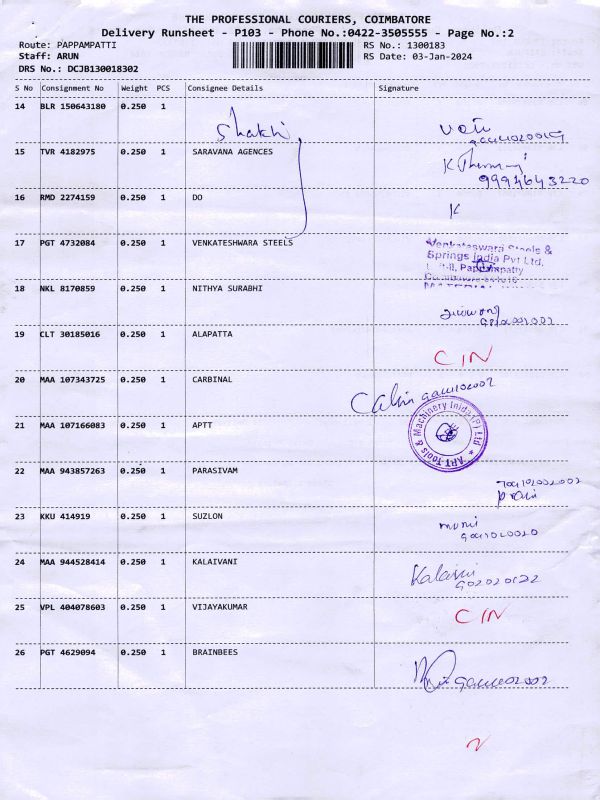 THE PROFESSIONAL COURIERS, COIMBATORE
Delivery Runsheet - P103 - Phone No.:0422-3505555 - Page No.:2
Route: PAPPAMPATTI RS No.: 1300183
Staff: ARUN RS Date: 03-Jan-2024
DRS No.: DCJB130018302
S No Consignment No Weight PCS Consignee Details Signature
14 BLR 150643180 0.250 1
Shakthi
15 TVR 4182975 0.250 1 SARAVANA AGENCES
9994643220
16 RMD 2274159 0.250 1 DO
K
17 PGT 4732084 0.250 1 VENKATESHWARA STEELS
Venkateswara Steels &
Springs India Pvt Ltd.
18 NKL 8170859 0.250 1 NITHYA SURABHI
19 CLT 30185016 0.250 1 ALAPATTA
CIN
20 MAA 107343725 0.250 1 CARBINAL
21 MAA 107166083 0.250 1 APTT
ART Tools & Machinery Inida (P) Ltd
22 MAA 943857263 0.250 1 PARASIVAM
23 KKU 414919 0.250 1 SUZLON
24 MAA 944528414 0.250 1 KALAIVANI
25 VPL 404078603 0.250 1 VIJAYAKUMAR
CIN
26 PGT 4629094 0.250 1 BRAINBEES